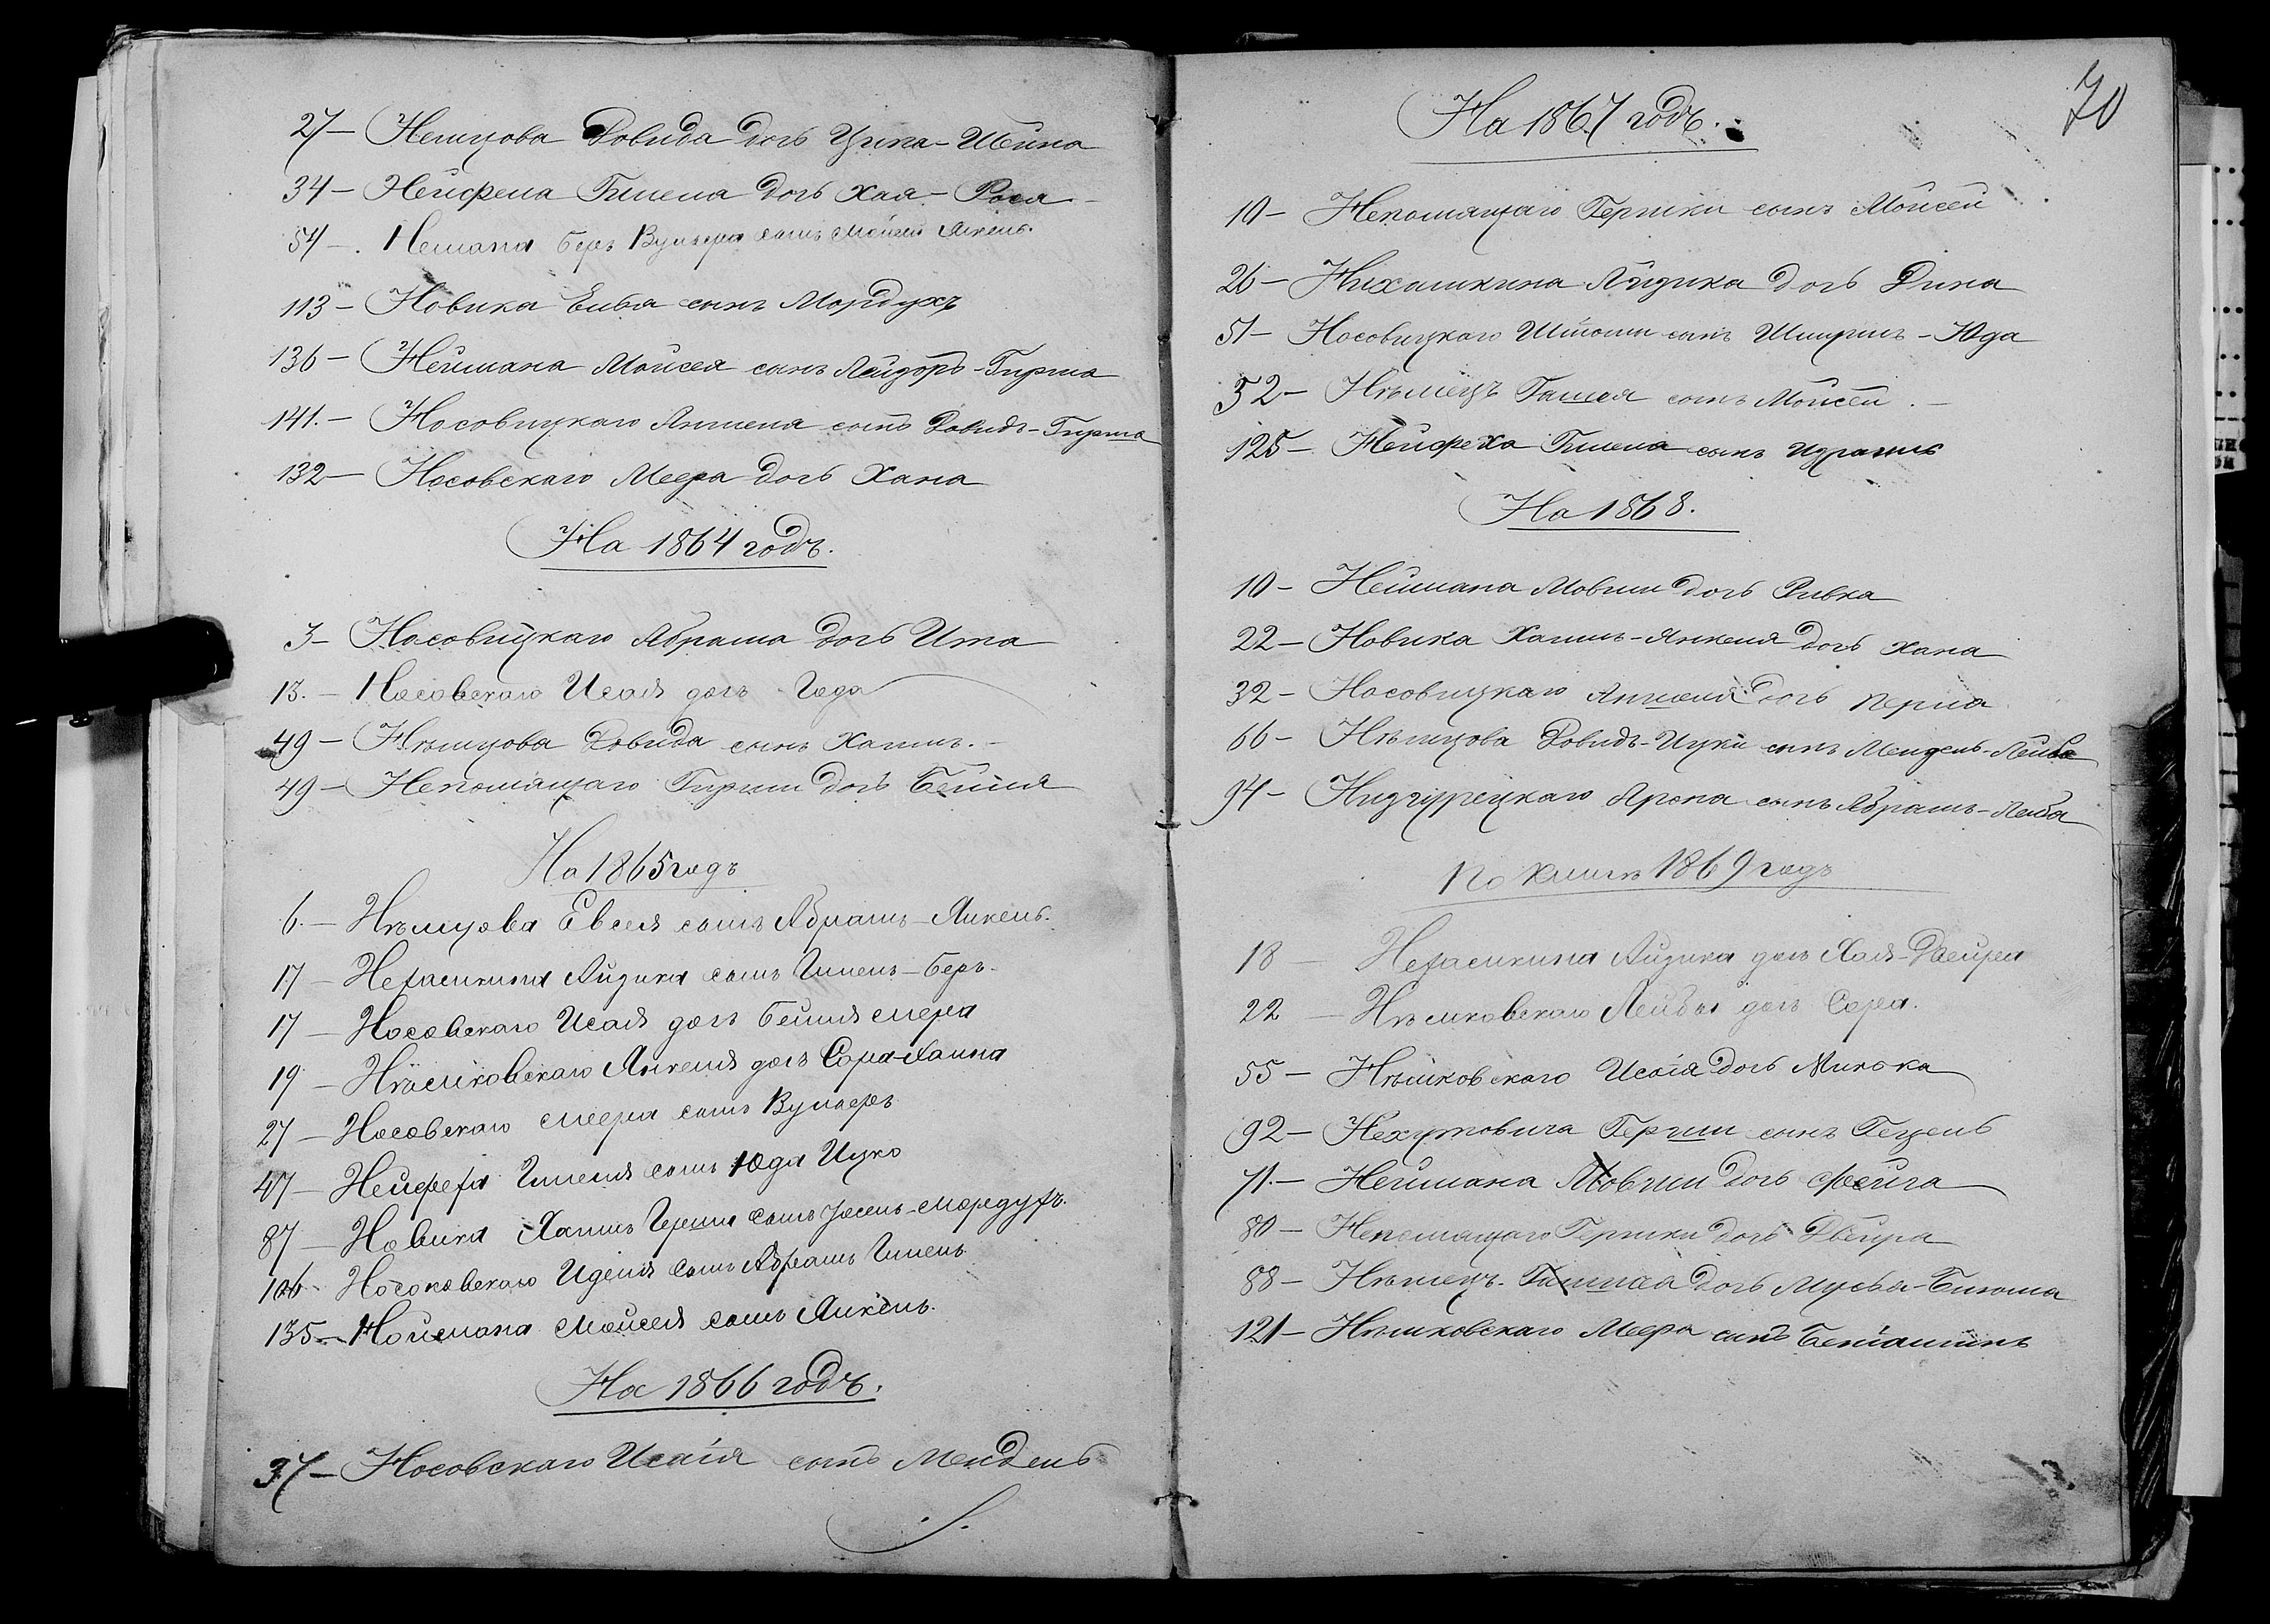 27 — Немцова Довида дочь Цика-Шейна
34 — Нейфеха Гилела дочь Хая - Рося
54 — Немана Беръ Вульфа сынъ Мойсей Янкель.
113 — Новика Ельи сынъ Мордухъ
136 — Неймана Мойсея сынъ Лейзоръ-Гирша
141. — Носовицкаго Янкеля сынъ Довидъ-Гирша
132 — Носовскаго Меера дочь Хана
На 1864 годъ.
3 — Носовицкаго Абрама дочь Ита
13. — Носовскаго Исаія дочь Года
49 — Нѣмцова Довида сынъ Хаимъ. —
49 — Непомящаго Гирши дочь Бейля
На 1865 годъ
6. — Нѣмцова Евсея сынъ Абрамъ-Янкель.
17 — Нехамкина Айзика сынъ Гилель-Беръ.
17 — Носовскаго Исаія дочь Бейля Мера
19 — Нѣмковскаго Янкеля дочь Сора-Хаина
27 — Носовскаго Меера сынъ Вульфъ
47 — Нейфеха Гилеля сынъ Юда Ицко
87 — Новика Хаимъ Герша сынъ Іосель-Мордухъ.
106 Носоковскаго Иделя сынъ Абрамъ Гилель
135 — Ноймана Мойсея сынъ Янкель.
На 1866 годъ.
37 — Носовскаго Исаія сынъ Мендель
70
На 1867 годъ.
10 — Непомящаго Гершки сынъ Мойсей
26 — Нихамкина Айзика дочь Дина
51 — Носовицкаго Шліомы сынъ Шмуль - Юда
52 — Нѣмецъ Гамшея сынъ Мойсей. —
125 — Нейфеха Гилела сынъ Израиль
На 1868.
10 — Неймана Мовши дочь Ривка
22 — Новика Хаимъ-Янкеля дочь Хана
32 — Носовицкаго Аншеля дочь Перла
66 — Нѣмцова Довидъ-Ицки сынъ Мендель-Лейба
94 — Низгурецкаго Арона сынъ Абрамъ-Лейба
По книгѣ 1869 годъ
18 — Нехамкина Айзика дочь Хая-Двейра
22 — Нѣмковскаго Лейбы дочь Сора.
55 — Нѣмковскаго Исаія дочь Минька
92 — Нехумовича Герши сынъ Гецель
71. — Неймана Мовши дочь Фейга
80 — Непомящаго Гершки дочь Двейра
88 — Нѣмецъ Гамшея дочь Мусья-Блюма
121 — Нѣмковскаго Меера сынъ Беніаминъ